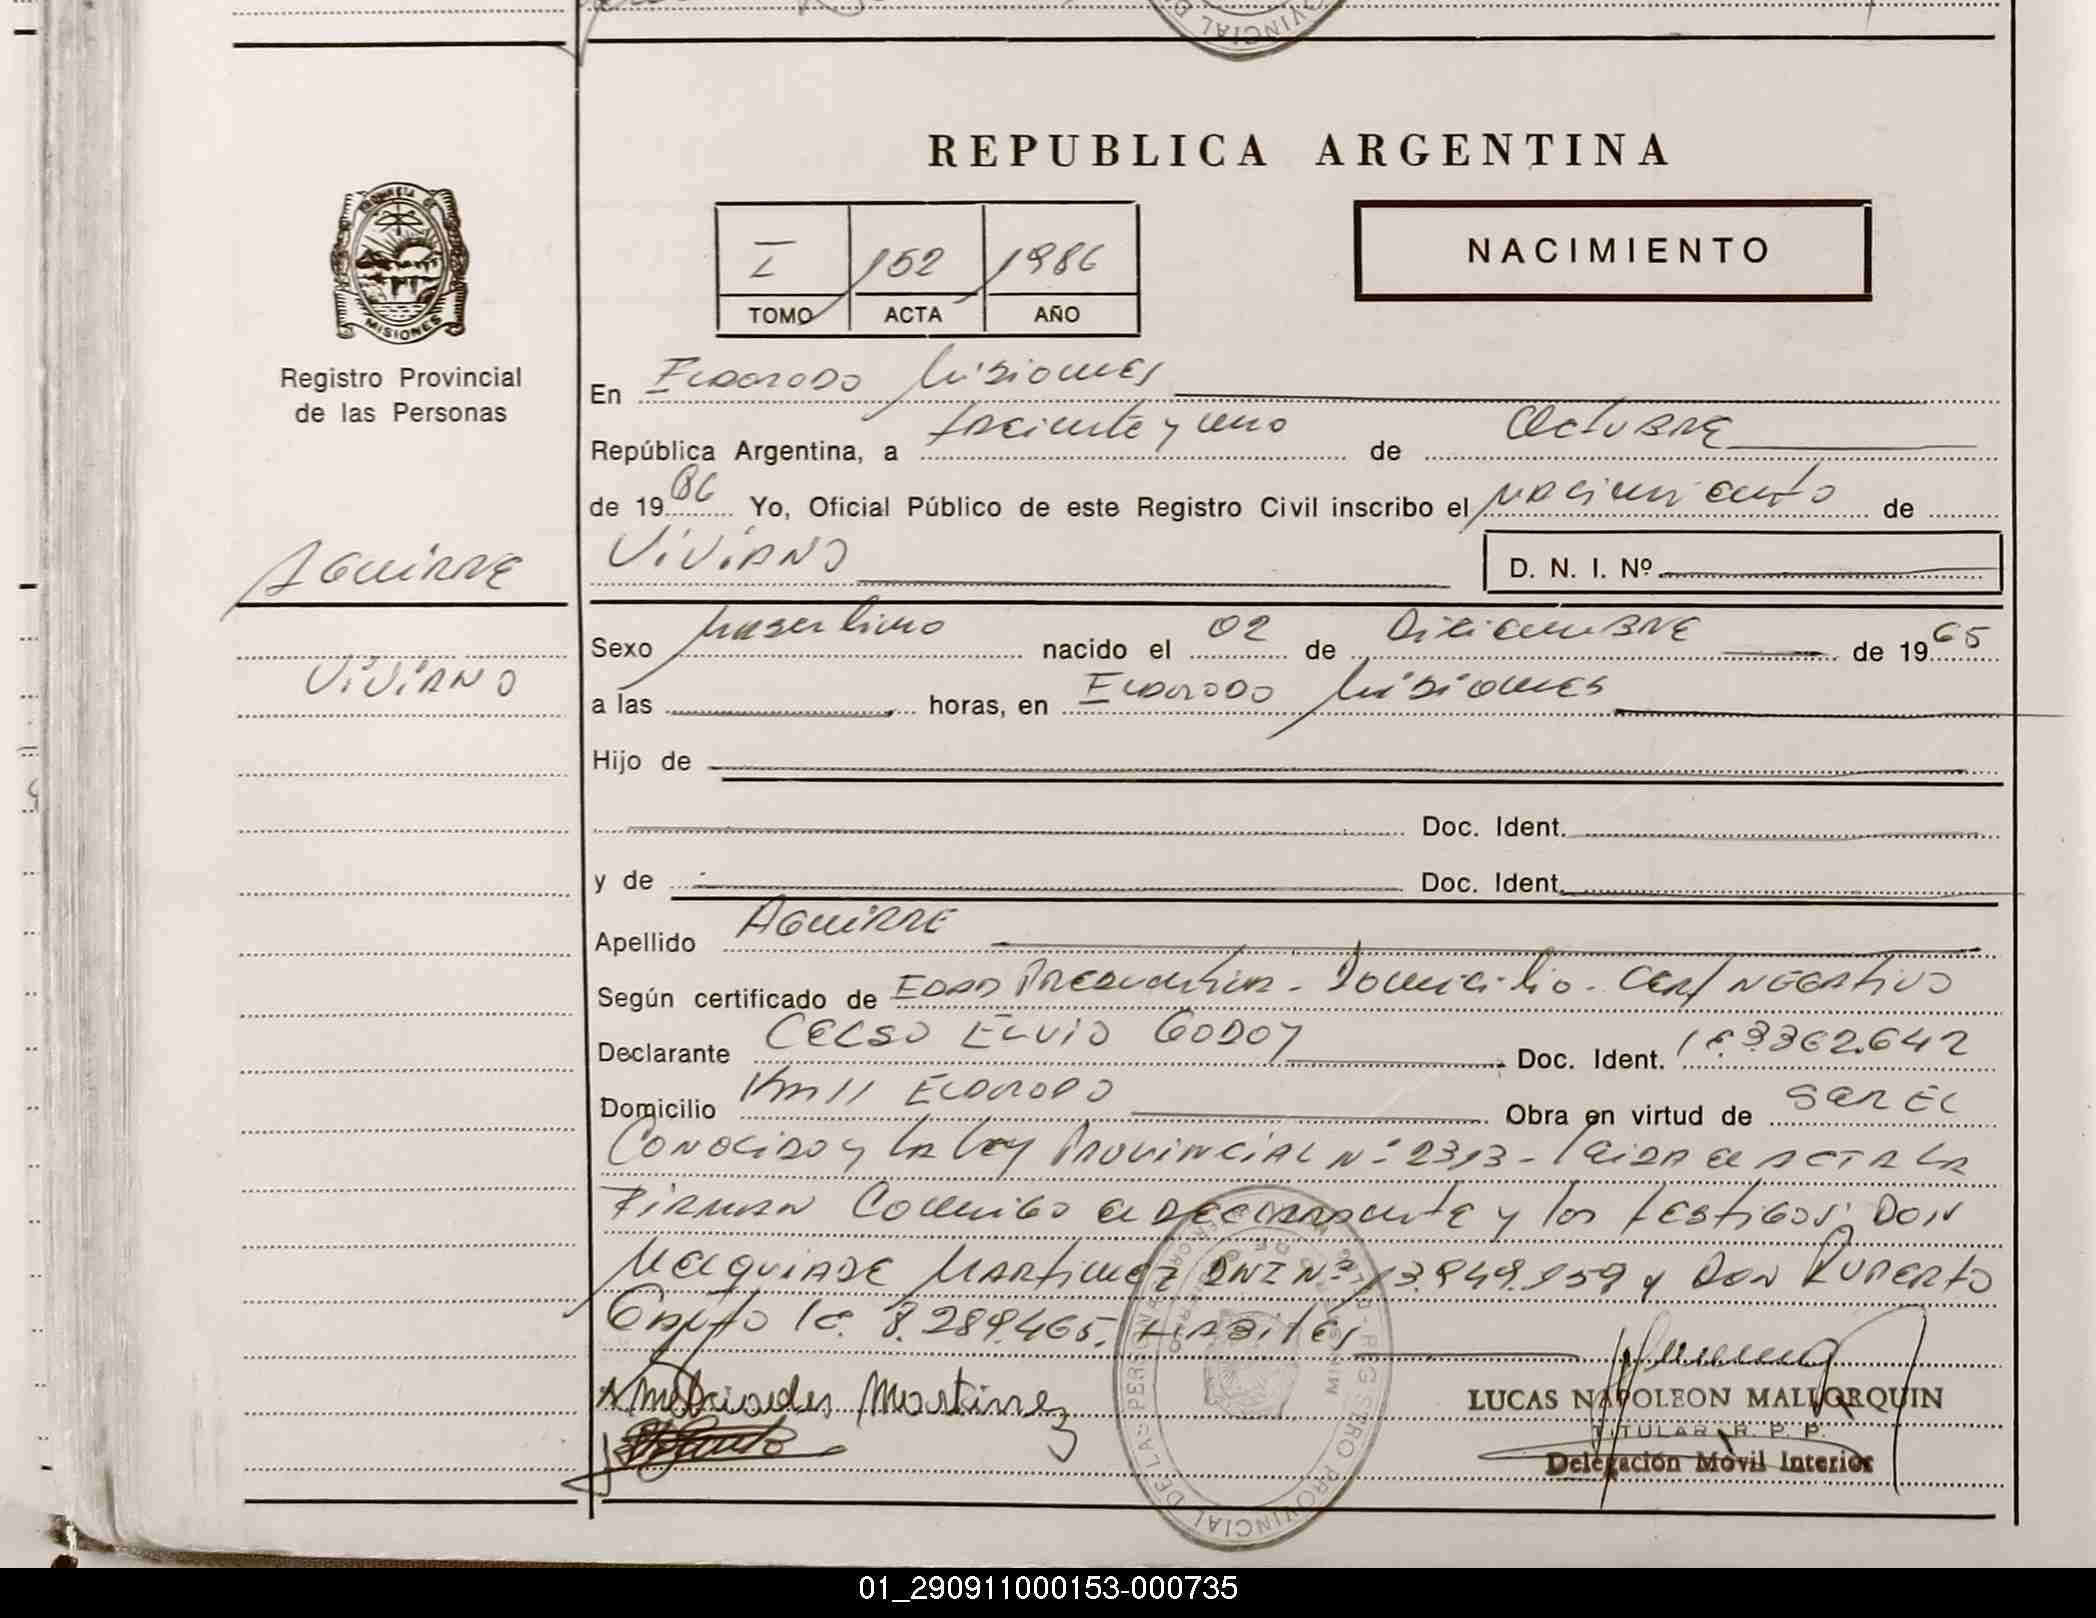 REPUBLICA ARGENTINA
I 152 1986
TOMO ACTA AÑO
NACIMIENTO
MISIONES
Registro Provincial
de las Personas
AGUIRRE
VIVIANO
En ELDORADO Misiones
República Argentina, a treinta y uno de OCTUBRE
de 1986 Yo, Oficial Público de este Registro Civil inscribo el nacimiento de
VIVIANO D. N. I. Nº
Sexo masculino nacido el 02 de Diciembre de 1965
a las horas, en ELDORADO Misiones
Hijo de
Doc. Ident.
y de Doc. Ident.
Apellido AGUIRRE
Según certificado de EDAD Presuntiva - Domicilio - Cert NEGATIVO
Declarante CELSO ELVIO GODOY Doc. Ident. 
Domicilio Km 11 ELDORADO Obra en virtud de SER EL
CONOCIDO y LA Ley PROVINCIAL Nº 2313 - Leida el ACTA LA
FIRMAN Conmigo el declarante y los testigos: DON
Martinez DNI Nº 13.949.959 y DON RUPERTO
8.289.465. HABILES
Melquiades Martinez
LUCAS NAPOLEON MALLORQUIN
TITULAR R. P. P.
Delegación Móvil Interior
REGISTRO PROVINCIAL DE LAS PERSONAS
01_290911000153-000735